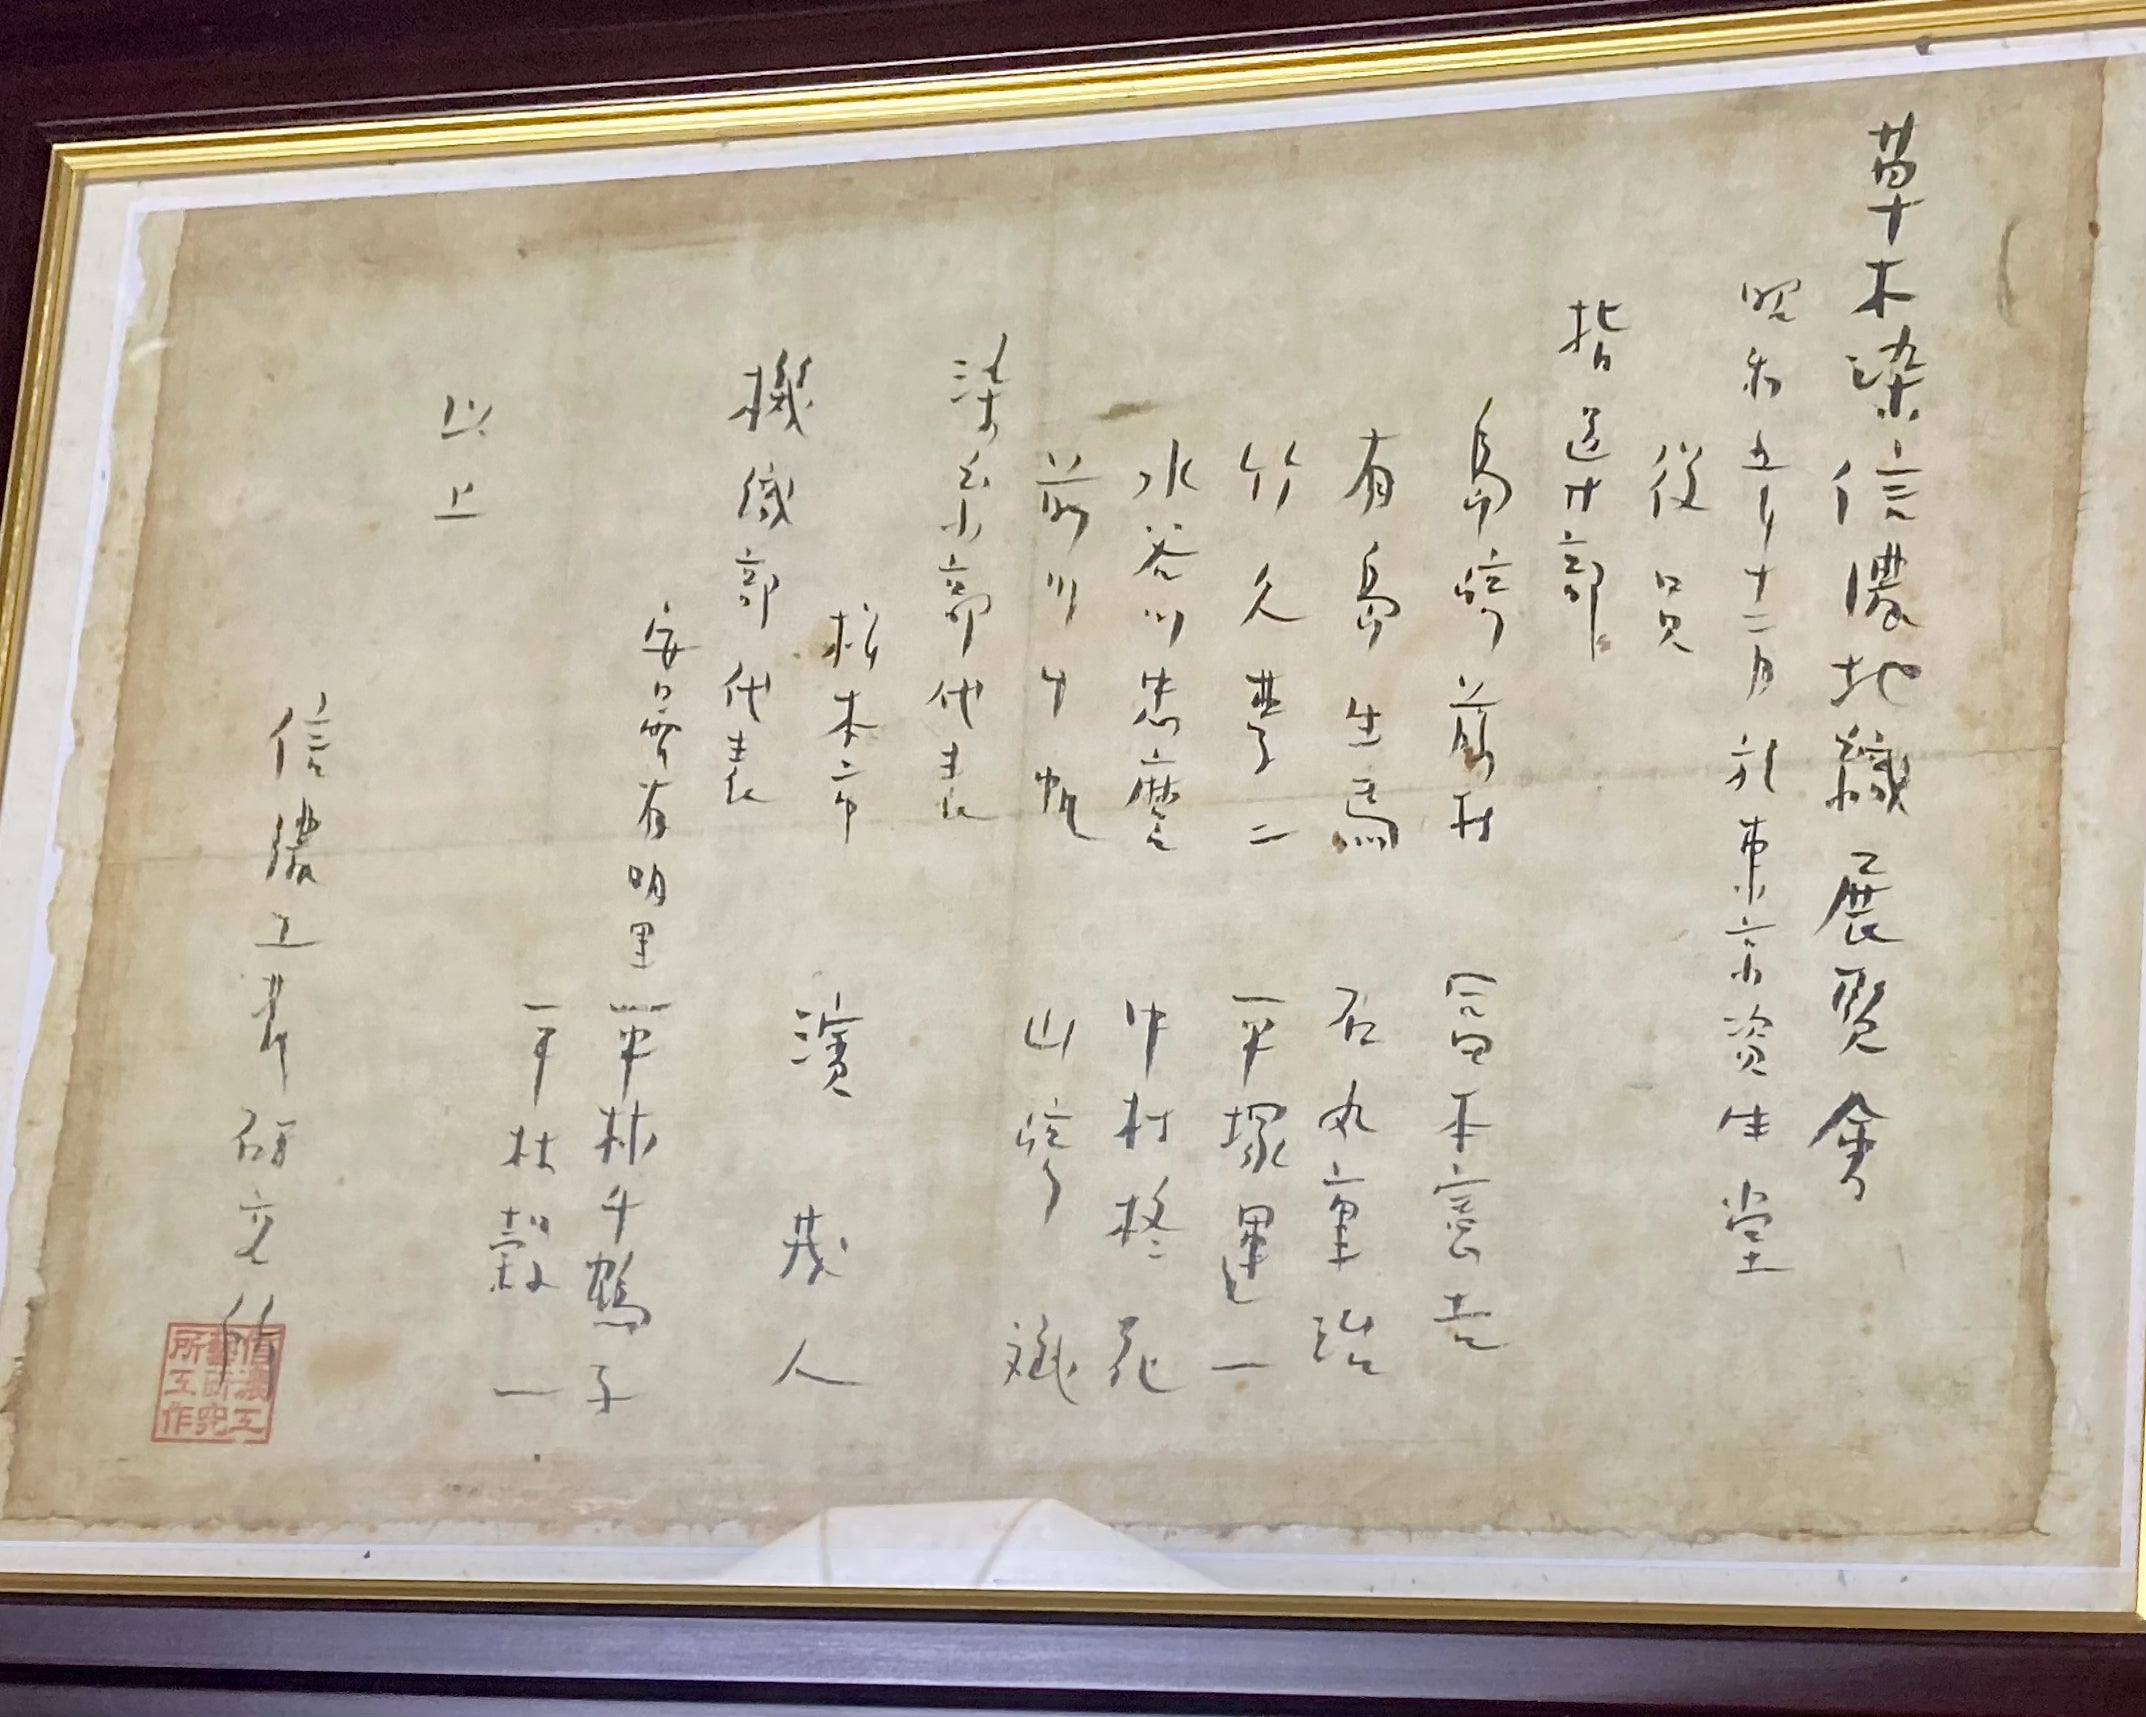 草木染信濃地織展覧會
昭和五年十二月 於東京資生堂
役員
指導部
島崎藤村 富本憲吉
有島生馬 石丸重治
竹久夢二 平塚運一
水谷川忠麿 中村柊花
前川千帆 山崎斌
染糸部代表
松本市 濱茂人
機織部代表
安曇有明里 平林千鶴子
平林穀一
以上
信濃工芸研究所
信濃工
藝研究
所工作